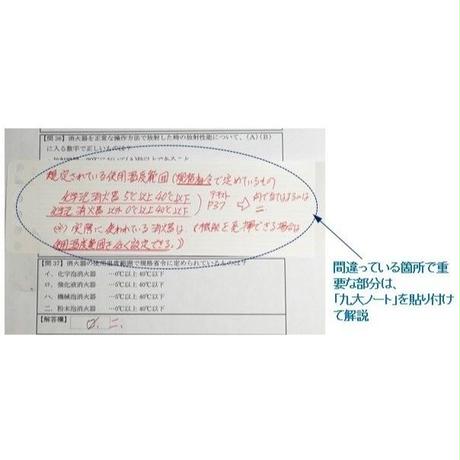 【問36】消火器を正常な操作方法で放射した時の放射性能について、(A)(B)
に入る数字で正しいものは?
規定されている使用温度範囲(規格省令で定めているもの
化学泡消火器 5℃以上40℃以下
化学泡消火器以外 0℃以上40℃以下
テキスト
P37
⇒ 内で当てはまるのは
ニ
※) 実際に使われている消火器は、(機能を発揮できる場合は
使用温度範囲を広く設定できる。))
【問37】消火器の使用温度範囲で規格省令に定められているものは?
イ、化学泡消火器 …0℃以上40℃以下
ロ、強化液消火器
ハ、機械泡消火器
ニ、粉末泡消火器 …0℃以上40℃以下
【解答欄】
ニ.
間違っている箇所で重
要な部分は、
「九大ノート」を貼り付け
て解説